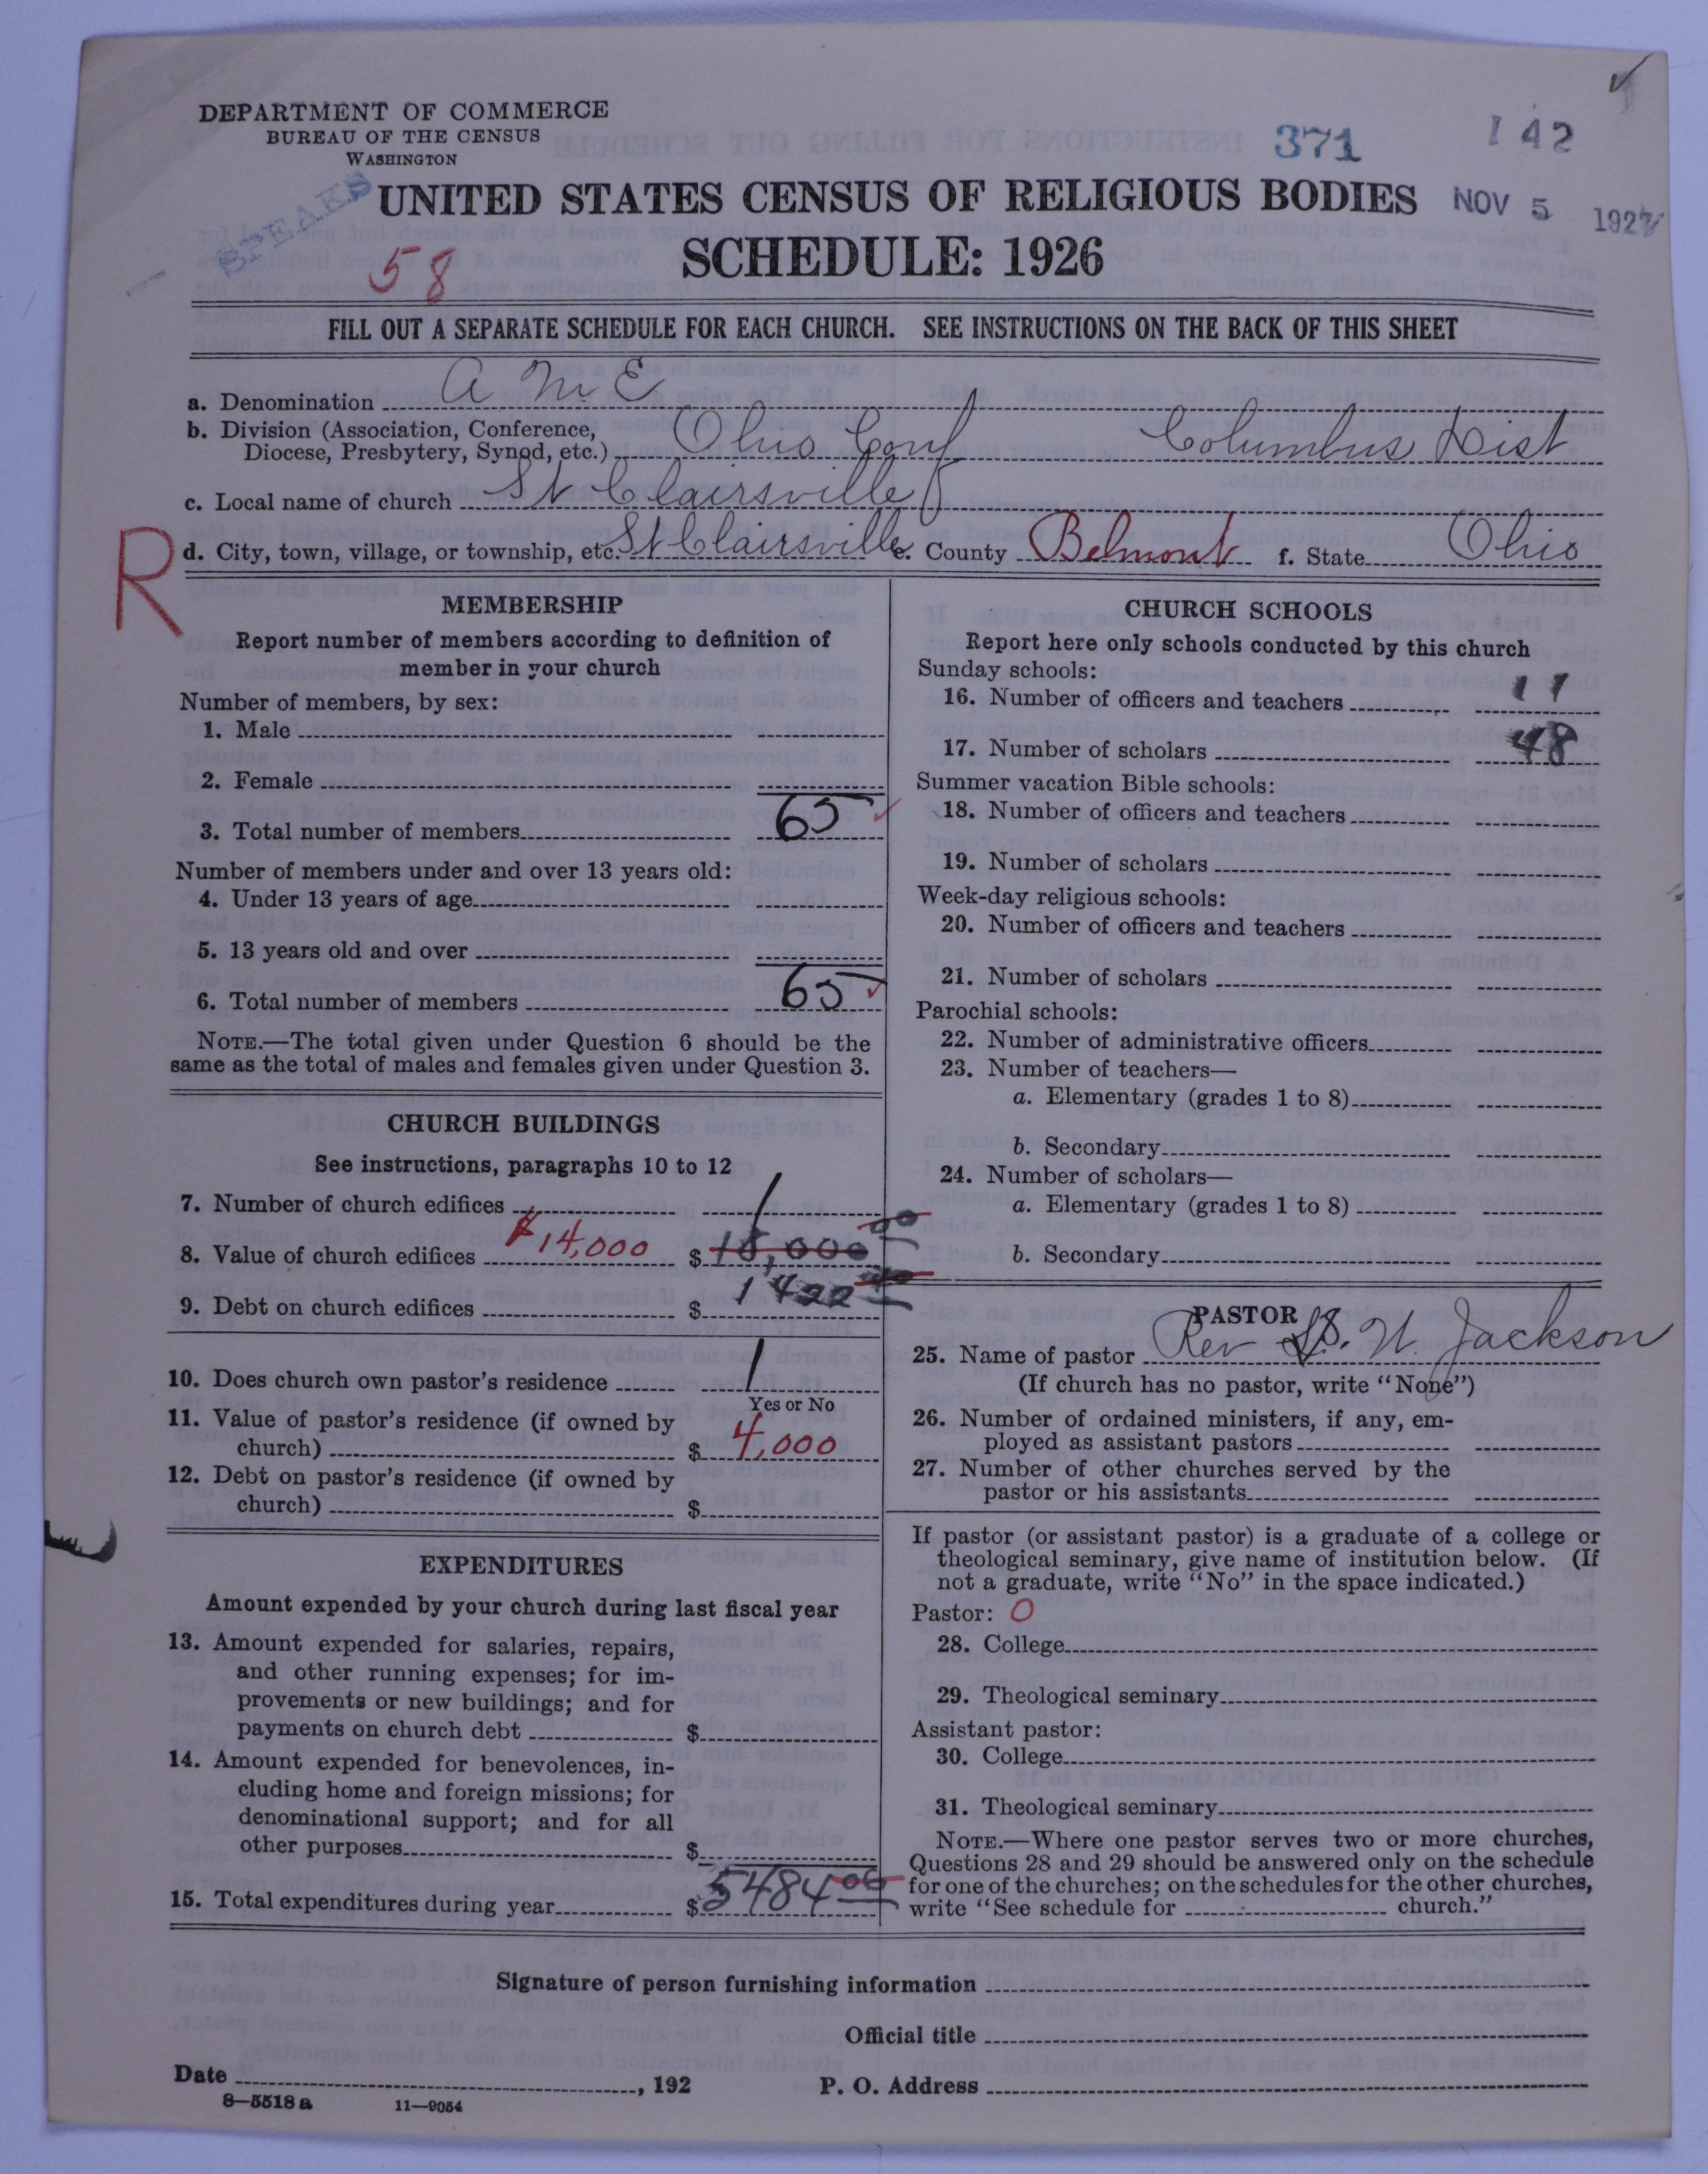 DEPARTMENT OF COMMERCE
BUREAU OF THE CENSUS
WASHINGTON
371
142
SPEAKS
UNITED STATES CENSUS OF RELIGIOUS BODIES
NOV 5 1927
58
SCHEDULE: 1926
FILL OUT A SEPARATE SCHEDULE FOR EACH CHURCH. SEE INSTRUCTIONS ON THE BACK OF THIS SHEET
a. Denomination A M E
b. Division (Association, Conference,
Diocese, Presbytery, Synod, etc.) Ohio Conf Columbus Dist
c. Local name of church St Clairsville
R
d. City, town, village, or township, etc. St Clairsville e. County Belmont f. State Ohio
MEMBERSHIP
Report number of members according to definition of
member in your church
Number of members, by sex:
1. Male
2. Female
3. Total number of members 65
Number of members under and over 13 years old:
4. Under 13 years of age
5. 13 years old and over
6. Total number of members 65
NOTE.—The total given under Question 6 should be the
same as the total of males and females given under Question 3.
CHURCH BUILDINGS
See instructions, paragraphs 10 to 12
7. Number of church edifices 1
8. Value of church edifices $14,000 $ 18,000 00
9. Debt on church edifices $ 1422
10. Does church own pastor's residence 1
Yes or No
11. Value of pastor's residence (if owned by
church) $ 4,000
12. Debt on pastor's residence (if owned by
church) $
EXPENDITURES
Amount expended by your church during last fiscal year
13. Amount expended for salaries, repairs,
and other running expenses; for im-
provements or new buildings; and for
payments on church debt $
14. Amount expended for benevolences, in-
cluding home and foreign missions; for
denominational support; and for all
other purposes $
15. Total expenditures during year $ 5484 00
CHURCH SCHOOLS
Report here only schools conducted by this church
Sunday schools:
16. Number of officers and teachers 11
17. Number of scholars 48
Summer vacation Bible schools:
18. Number of officers and teachers
19. Number of scholars
Week-day religious schools:
20. Number of officers and teachers
21. Number of scholars
Parochial schools:
22. Number of administrative officers
23. Number of teachers—
a. Elementary (grades 1 to 8)
b. Secondary
24. Number of scholars—
a. Elementary (grades 1 to 8)
b. Secondary
PASTOR
25. Name of pastor Rev W. Jackson
(If church has no pastor, write "None")
26. Number of ordained ministers, if any, em-
ployed as assistant pastors
27. Number of other churches served by the
pastor or his assistants
If pastor (or assistant pastor) is a graduate of a college or
theological seminary, give name of institution below. (If
not a graduate, write "No" in the space indicated.)
Pastor: O
28. College
29. Theological seminary
Assistant pastor:
30. College
31. Theological seminary
NOTE.—Where one pastor serves two or more churches,
Questions 28 and 29 should be answered only on the schedule
for one of the churches; on the schedules for the other churches,
write "See schedule for church."
Signature of person furnishing information
Official title
Date , 192
P. O. Address
8—5518 a 11—9054